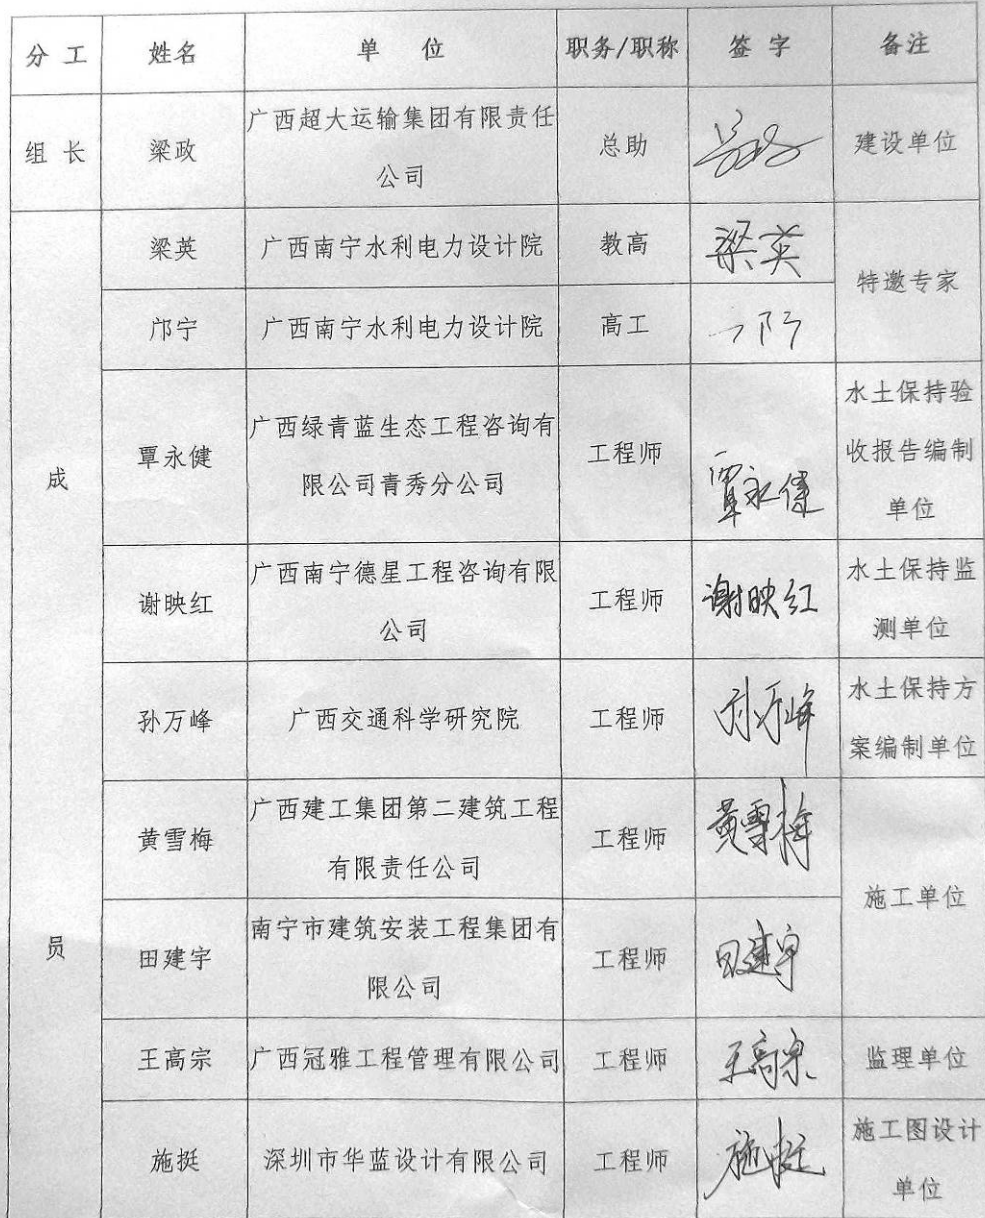 分 工 姓名 单 位 职务/职称 签 字 备注
组 长 梁政 广西超大运输集团有限责任公司 总助 建设单位
成员
梁英 广西南宁水利电力设计院 教高 梁英 特邀专家
邝宁 广西南宁水利电力设计院 高工
覃永健 广西绿青蓝生态工程咨询有限公司青秀分公司 工程师 覃永健 水土保持验收报告编制单位
谢映红 广西南宁德星工程咨询有限公司 工程师 谢映红 水土保持监测单位
孙万峰 广西交通科学研究院 工程师 孙万峰 水土保持方案编制单位
黄雪梅 广西建工集团第二建筑工程有限责任公司 工程师 黄雪梅 施工单位
田建宇 南宁市建筑安装工程集团有限公司 工程师 田建宇
王高宗 广西冠雅工程管理有限公司 工程师 王高宗 监理单位
施挺 深圳市华蓝设计有限公司 工程师 施挺 施工图设计单位